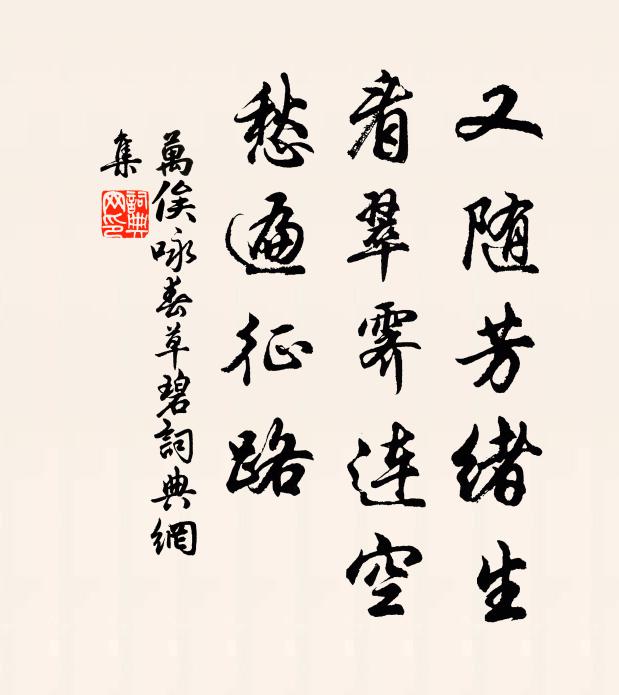 又随芳绪生
看翠霁连空
愁遍征路
萬俟咏春草碧詞典網
集
詞典網印